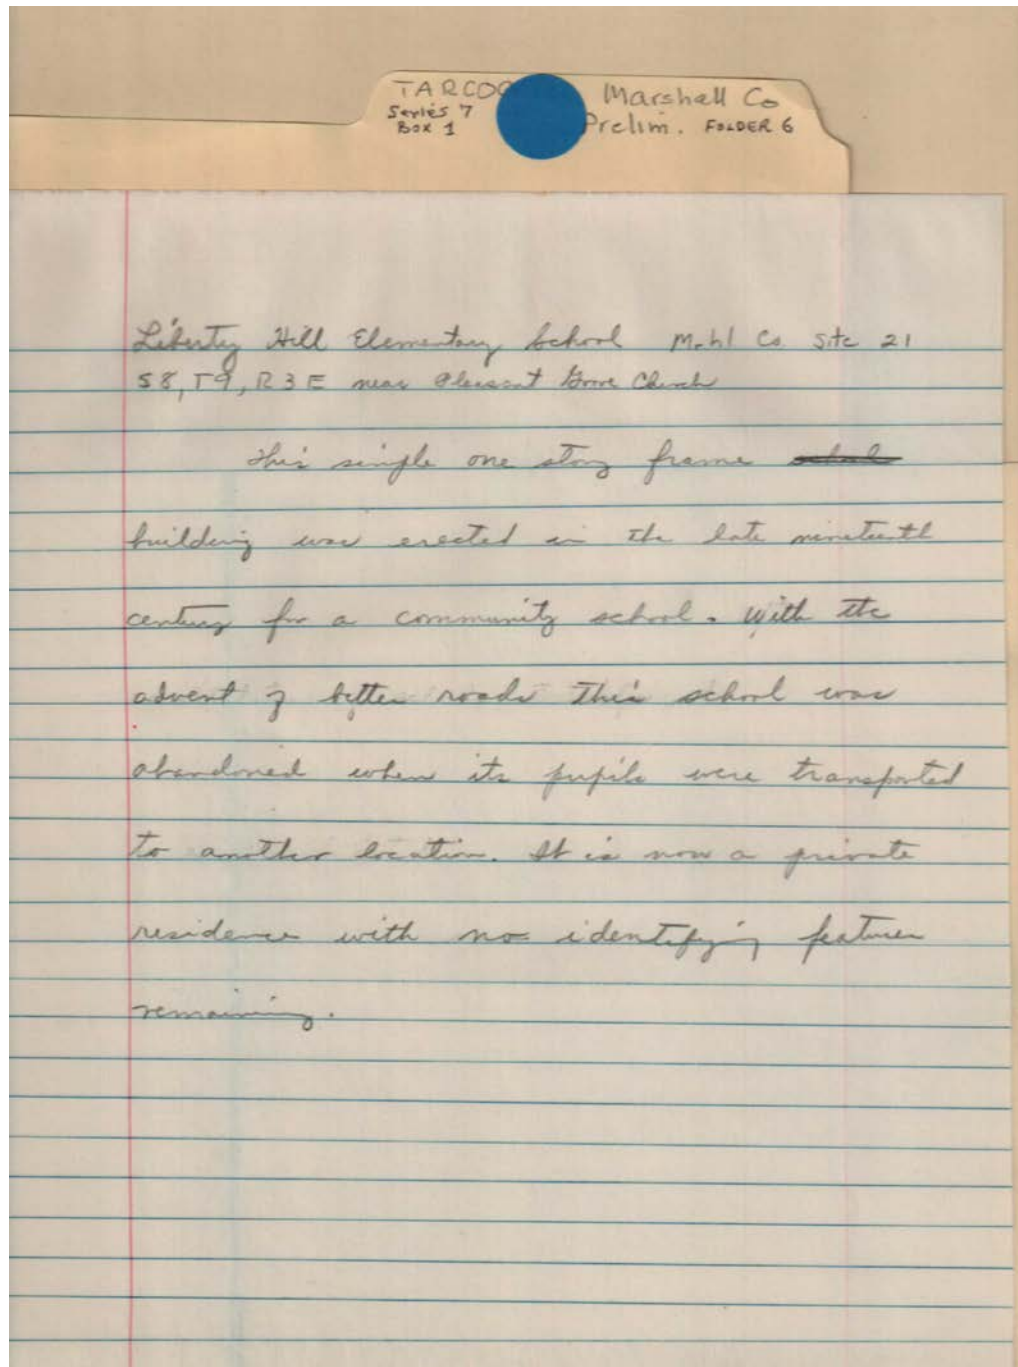 TARCOG
Series 7
Box 1
Marshall Co
Prelim. FOLDER 6
Liberty Hill Elementary School Mrhl Co. Site 21
S8, T9, R3E near Pleasant Grove Church
This simple one story frame school
building was erected in the late nineteenth
century for a community school. With the
advent of better roads this school was
abandoned when its pupils were transported
to another location. It is now a private
residence with no identifying features
remaining.